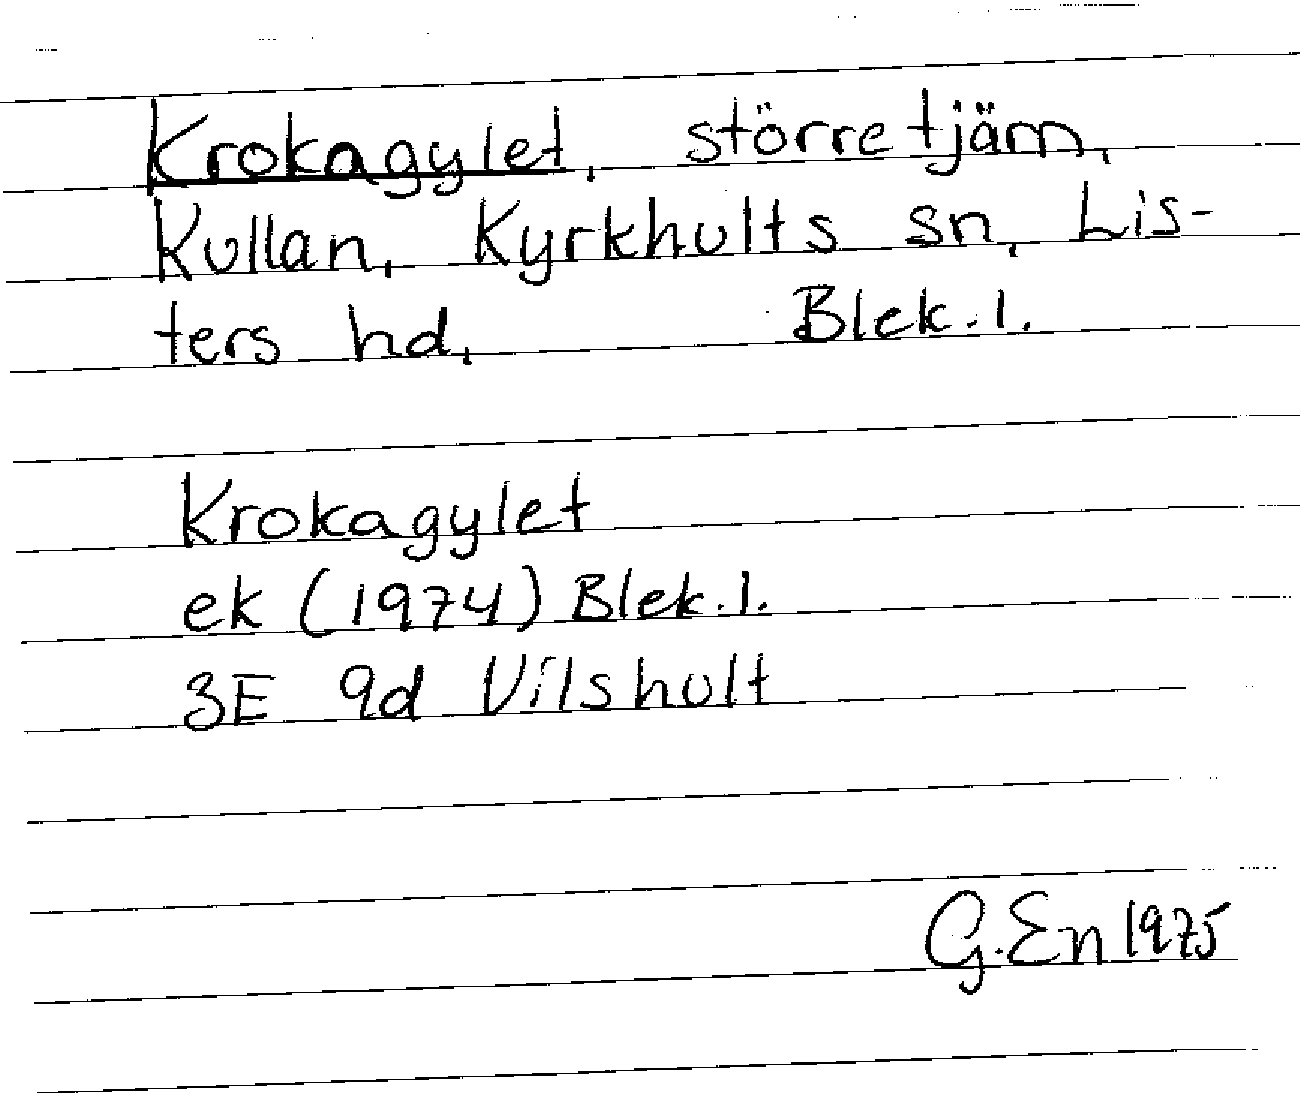 Krokagylet, större tjärn,
Kullan, Kyrkhults sn, Lis-
ters hd, Blek. l.
Krokagylet
ek (1974) Blek. l.
3E 9d Vilshult
G. En 1975